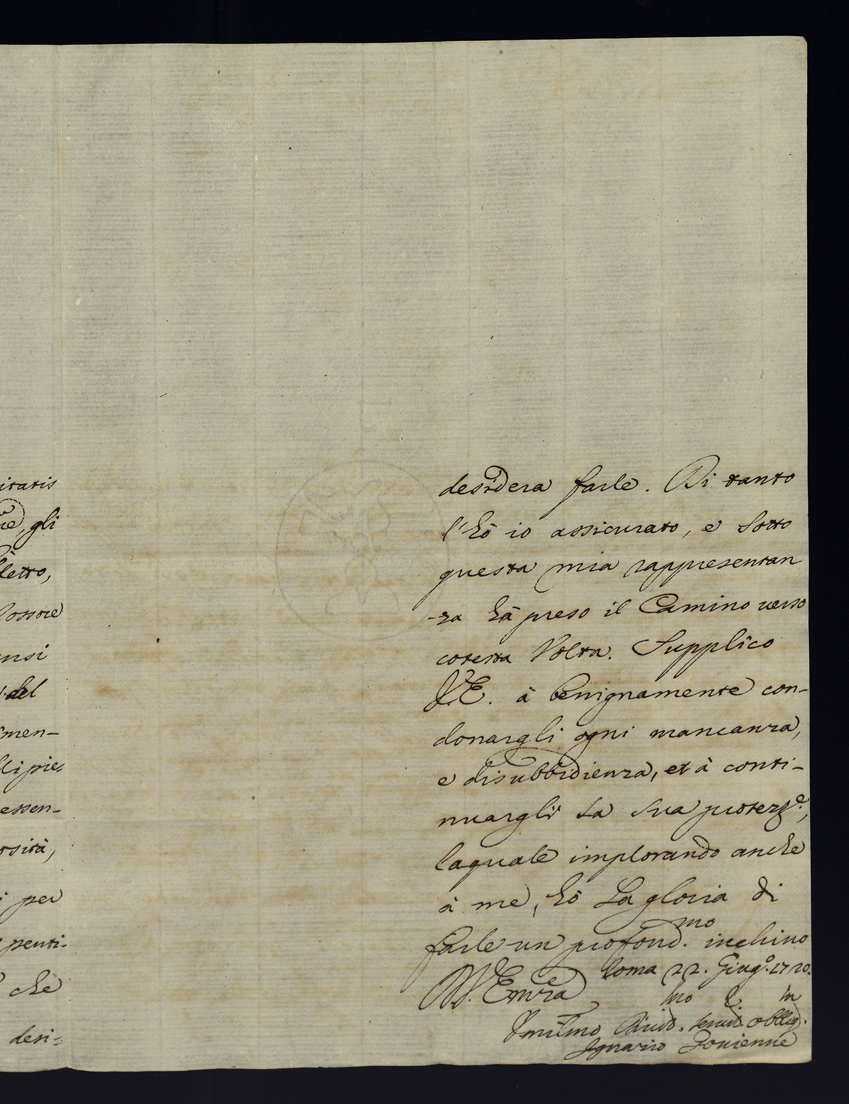 itatis
re, gli
letto,
Possore
ensi
del
men-
lli pie-
essen-
osità,
i per
penti-
che
desi-
desidera farle. Di tanto
l'hò io assicurato, e sotto
questa mia rappresentan
-za hà preso il Camino verso
cotesta Volta. Supplico
V.E. à benignamente con-
donargli ogni mancanza,
e disubbidienza, et à conti-
nuargli La sua proteze,
laquale implorando anche
à me, hò La gloria di
farle un profond.mo inchino
Roma 22. Giugo. 1720.
V. Emza
Umilmo Divotmo servre obbligmo
Ignazio